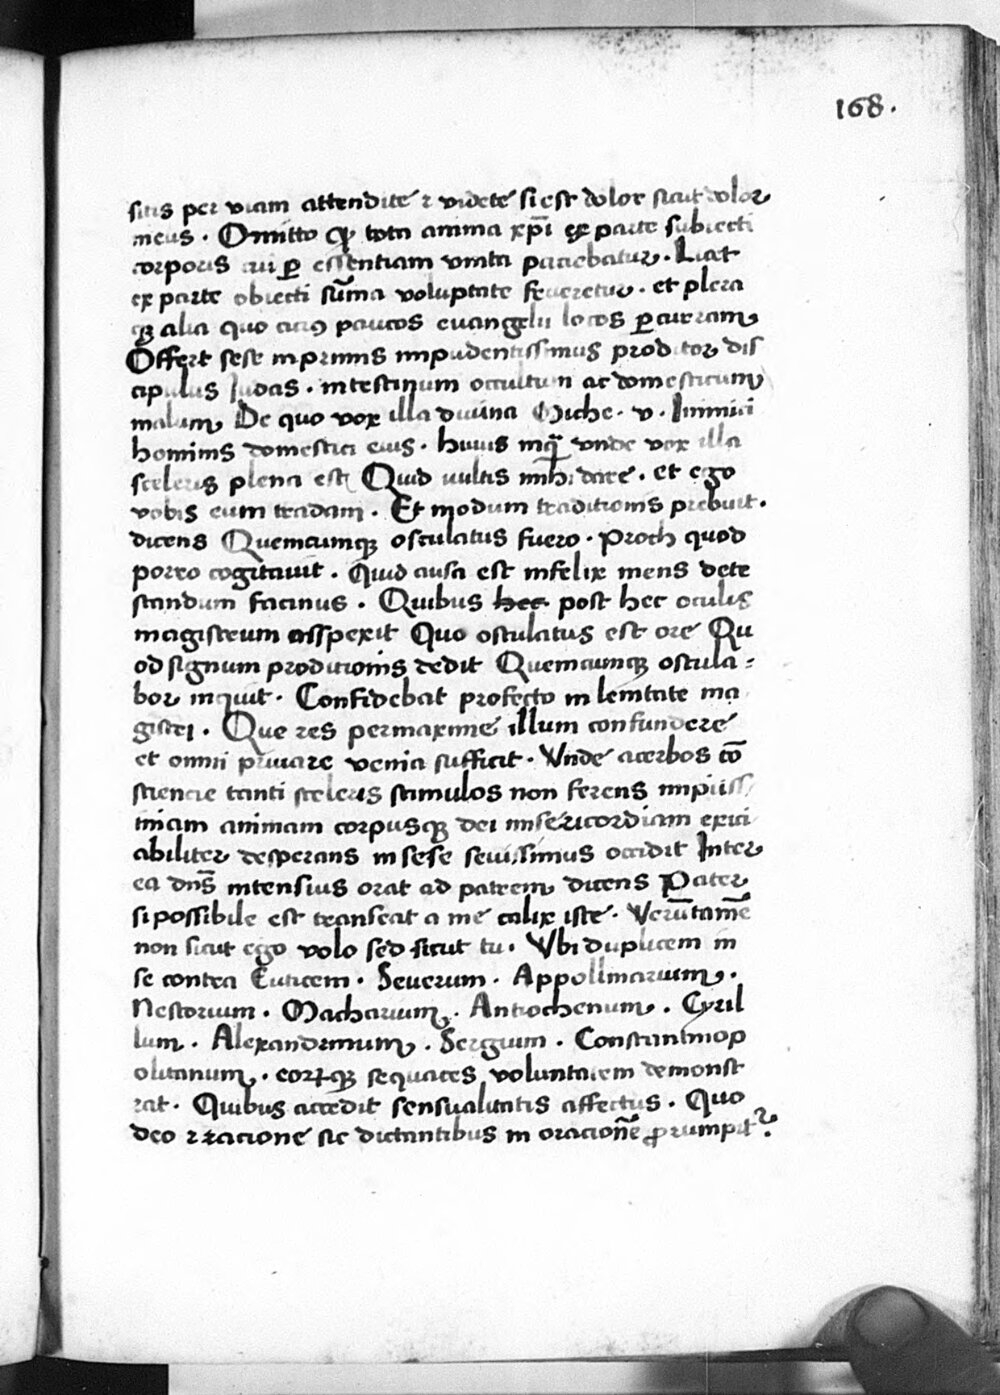 168.
sitis per viam attendite ⁊ videte si est dolor sicut dolor
meus. Omitto ꝙ tota anima xp̄i ex parte subiecti
corporis cui ꝑ essentiam vnita paciebatur. Licet
ex parte obiecti sūma voluptate frueretur. et plera
qꝫ alia quo cicius paucos euangelii locos ꝑcurram
Offert sese inprimis impudentissimus proditor dis
cipulus Judas. intestinum occultum ac domesticum
malum De quo vox illa diuina Miche. v. Inimici
hominis domestici eius. huius inq̄ vnde vox illa
sceleris plena est Quid uultis mihi dare. et ego
vobis eum tradam. Et modum traditionis prebuit.
dicens Quemcumqꝫ osculatus fuero. Proch quod
porro cogitauit. Quid ausa est infelix mens dete
standum facinus. Quibus hec post hec oculis
magistrum asspexit Quo osculatus est ore Qu
od signum proditionis dedit Quemcumqꝫ oscula=
bor inquit. Confidebat profecto in lenitate ma
gistri. Que res permaxime illum confundere
et omni priuare venia sufficit. Vnde acerbos cō
sciencie tanti sceleris stimulos non ferens impiiss
imam animam corpusqꝫ dei misericordiam exici
abiliter desperans in sese seuissimus occidit Inter
ea dn̄s intensius orat ad patrem dicens Pater
si possibile est transeat a me calix iste. Verūtamē
non sicut ego volo sed sicut tu. Vbi duplicem in
se contra Euticem. Seuerum. Appollinarium.
Nestorium. Macharium. Antiochenum. Cyril
lum. Alexandrinum. Sergium. Constantinop
olitanum. eorꝝqꝫ sequaces voluntatem demonst
rat. Quibus accedit sensualitatis affectus. Quo
deo ⁊ racione sic dictantibus in oracionē ꝓrumpit